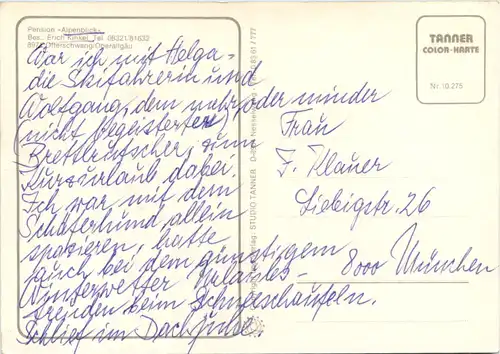 Pension »Alpenblick«
Bes.: Erich Kinkel, Tel. 08321/81633
8972 Ofterschwang/Oberallgäu
War ich mit Helga -
die Skifahrerin und
Wolfgang, dem mehr oder minder
(nicht) begeisterter
Brettlrutscher, zum
Kurzurlaub dabei.
Ich war mit dem
Schäferhund allein
spazieren, hatte
auch bei dem günstigem
Winterwetter Urlaubs-
freuden beim Schneeschaufeln.
Schlief im Dach
TANNER
COLOR-KARTE
Nr. 10 275
Frau
F. Klauer
Liebigstr. 26
8000 München
STUDIO TANNER